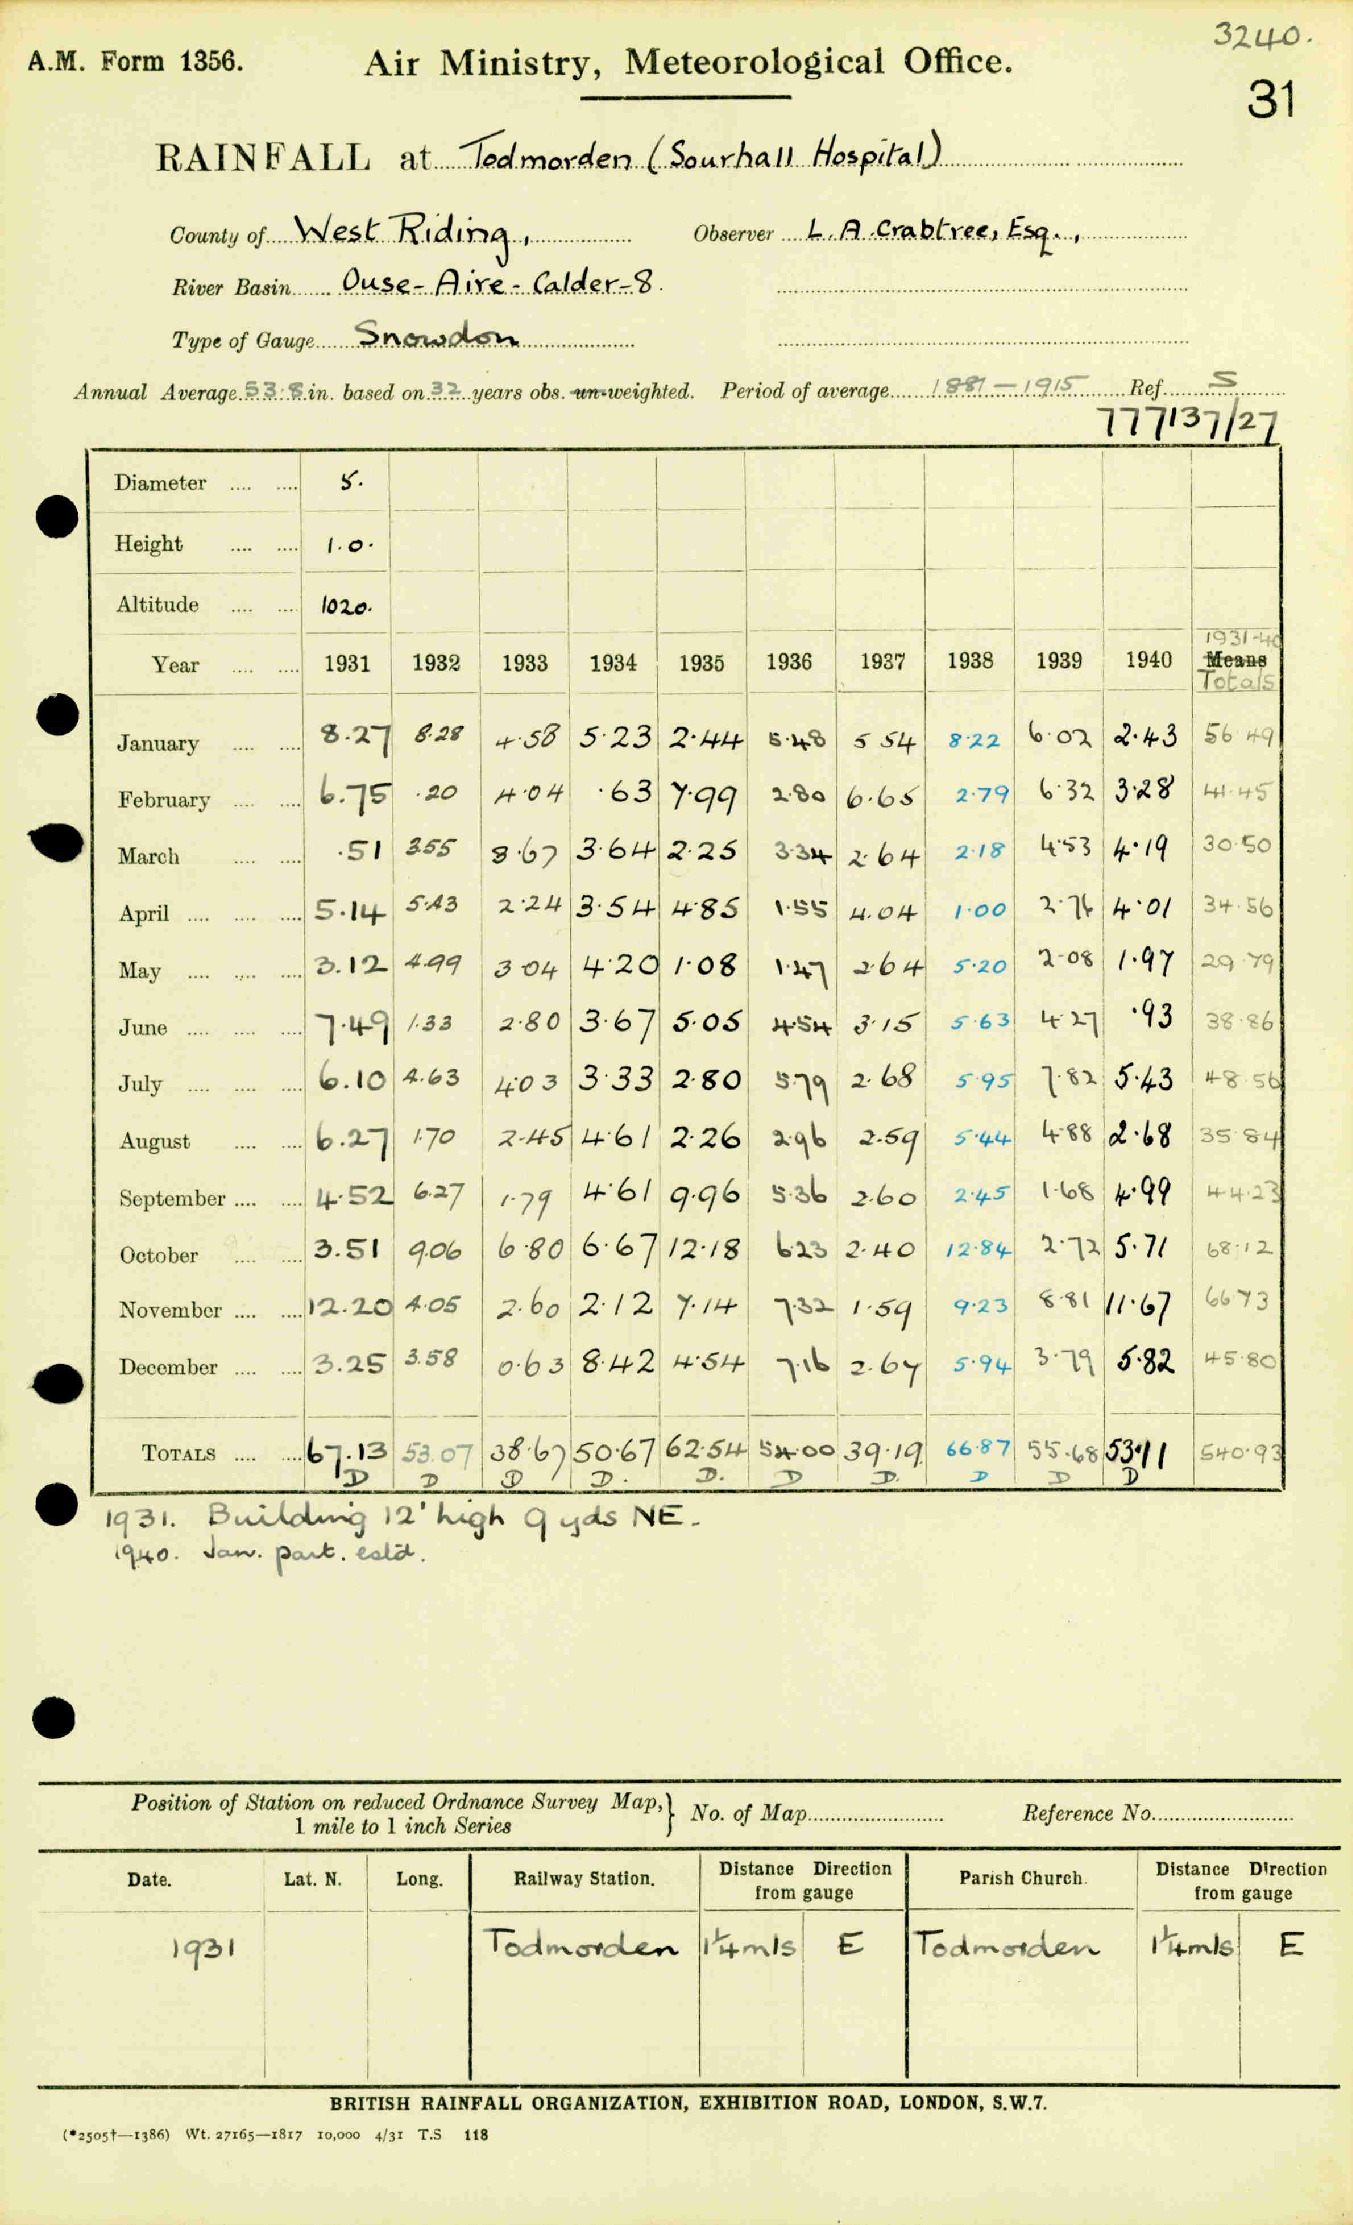 3240.
A.M. Form 1356.
Air Ministry, Meteorological Office.
31
RAINFALL at Todmorden (Sourhall Hospital)
County of West Riding, Observer L. A. Crabtree, Esq.,
River Basin Ouse-Aire-Calder-8.
Type of Gauge Snowdon
Annual Average 53.8 in. based on 32 years obs. un-weighted. Period of average 1881-1915 Ref. S
777137/27
Diameter 5.
Height 1.0.
Altitude 1020.
1931-40
Year 1931 1932 1933 1934 1935 1936 1937 1938 1939 1940 Means
Totals
January 8.27 8.28 4.58 5.23 2.44 5.48 5.54 8.22 6.02 2.43 56.49
February 6.75 .20 4.04 .63 7.99 2.80 6.65 2.79 6.32 3.28 41.45
March .51 3.55 3.67 3.64 2.25 3.34 2.64 2.18 4.53 4.19 30.50
April 5.14 5.43 2.24 3.54 4.85 1.55 4.04 1.00 2.76 4.01 34.56
May 3.12 4.99 3.04 4.20 1.08 1.47 2.64 5.20 2.08 1.97 29.79
June 7.49 1.33 2.80 3.67 5.05 4.54 3.15 5.63 4.27 .93 38.86
July 6.10 4.63 4.03 3.33 2.80 5.79 2.68 5.95 7.82 5.43 48.56
August 6.27 1.70 2.45 4.61 2.26 2.96 2.59 5.44 4.88 2.68 35.84
September 4.52 6.27 1.79 4.61 9.96 5.36 2.60 2.45 1.68 4.99 44.23
October 3.51 9.06 6.80 6.67 12.18 6.23 2.40 12.84 2.72 5.71 68.12
November 12.20 4.05 2.60 2.12 7.14 7.32 1.59 9.23 8.81 11.67 66.73
December 3.25 3.58 0.63 8.42 4.54 7.16 2.67 5.94 3.79 5.82 45.80
TOTALS 67.13 53.07 38.67 50.67 62.54 54.00 39.19 66.87 55.68 53.11 540.93
D D D D. D. D D. D D D
1931. Building 12' high 9 yds NE.
1940. Jan. part. estd.
Position of Station on reduced Ordnance Survey Map, } No. of Map Reference No.
1 mile to 1 inch Series
Date. Lat. N. Long. Railway Station. Distance Direction from gauge Parish Church. Distance Direction from gauge
1931 Todmorden 1¼mls E Todmorden 1¼mls E
BRITISH RAINFALL ORGANIZATION, EXHIBITION ROAD, LONDON, S.W.7.
(*2505†—1386) Wt. 27165—1817 10,000 4/31 T.S 118